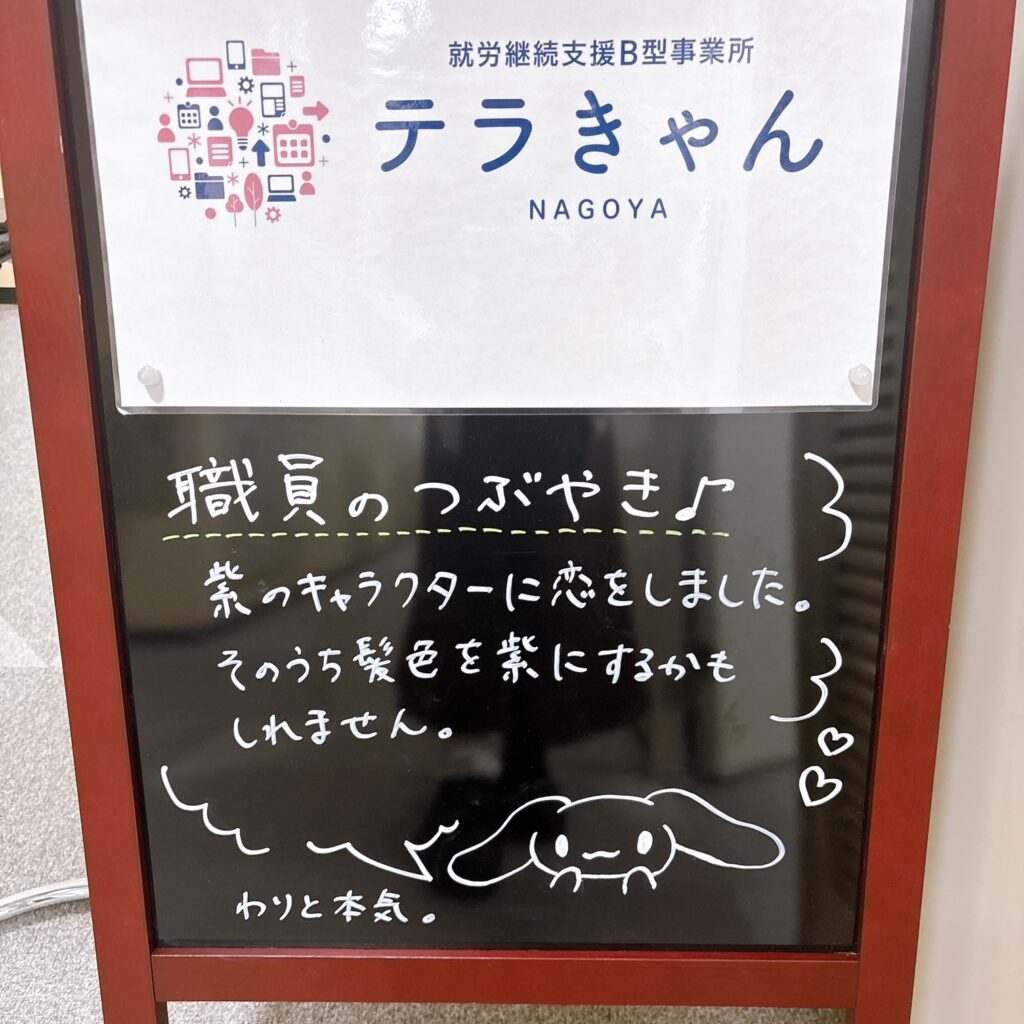 就労継続支援B型事業所
テラきゃん
NAGOYA
職員のつぶやき♪
紫のキャラクターに恋をしました。
そのうち髪色を紫にするかも
しれません。
わりと本気。